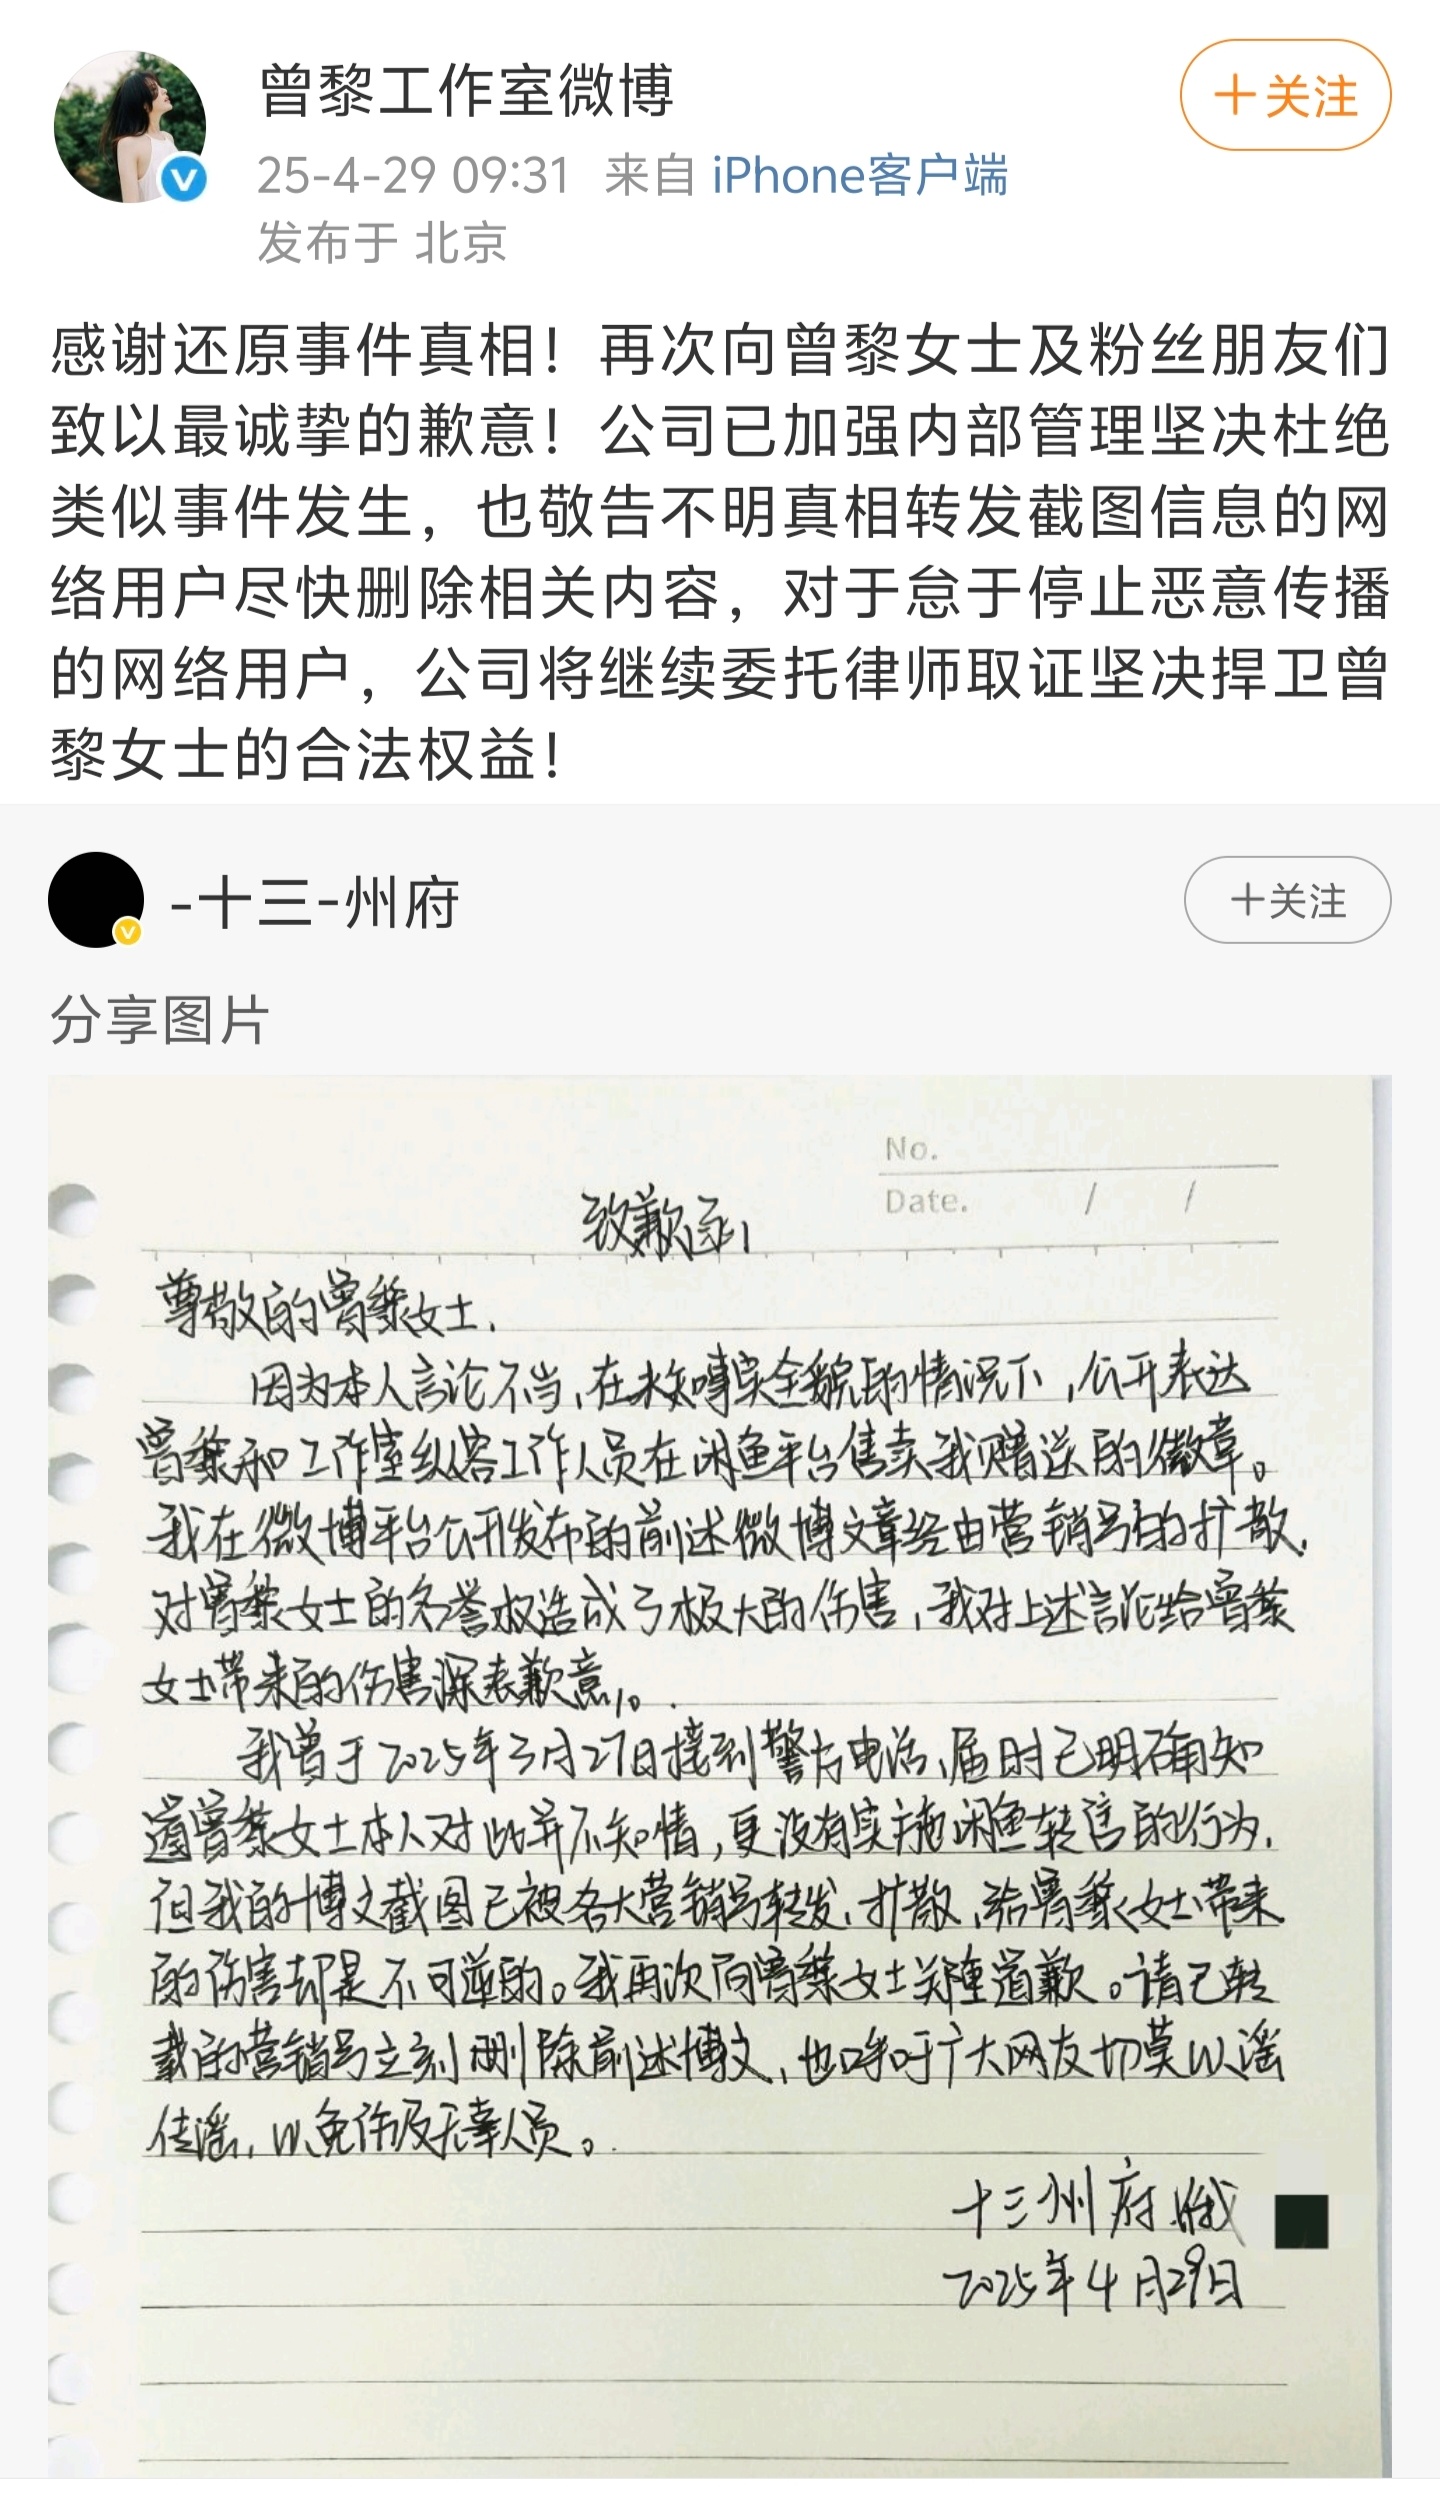 曾黎工作室微博
+关注
25-4-29 09:31 来自 iPhone客户端
发布于 北京
感谢还原事件真相！再次向曾黎女士及粉丝朋友们
致以最诚挚的歉意！公司已加强内部管理坚决杜绝
类似事件发生，也敬告不明真相转发截图信息的网
络用户尽快删除相关内容，对于怠于停止恶意传播
的网络用户，公司将继续委托律师取证坚决捍卫曾
黎女士的合法权益！
-十三-州府
+关注
分享图片
No.
Date. / /
致歉函
尊敬的曾黎女士,
因为本人言论不当,在未知事实全貌的情况下,公开表达
曾黎和工作室纵容工作人员在闲鱼平台售卖我赠送的徽章。
我在微博平台公开发布的前述微博文章经由营销号的扩散,
对曾黎女士的名誉权造成了极大的伤害,我对上述言论给曾黎
女士带来的伤害深表歉意。
我曾于2025年3月27日接到警方电话,届时已明确知
道曾黎女士本人对此并不知情,更没有实施闲鱼转售的行为,
但我的博文截图已被各大营销号转发、扩散,给曾黎女士带来
的伤害却是不可逆的。我再次向曾黎女士郑重道歉。请已转
载的营销号立刻删除前述博文,也呼吁广大网友切莫以谣
传谣,以免伤及无辜人员。
十三州府
2025年4月29日